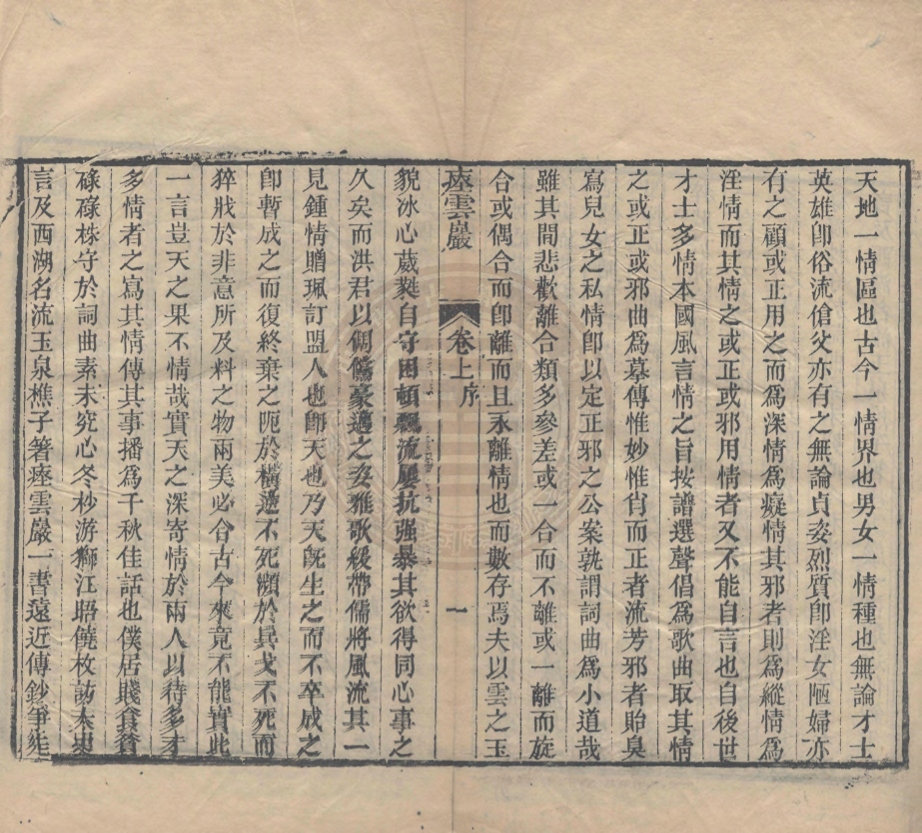 天地一情區也古今一情界也男女一情種也無論才士
英雄卽俗流傖父亦有之無論貞姿烈質卽淫女陋婦亦
有之顧或正用之而爲深情爲癡情其邪者則爲縱情爲
淫情而其情之或正或邪用情者又不能自言也自後世
才士多情本國風言情之旨按譜選聲倡爲歌曲取其情
之或正或邪曲爲摹傳惟妙惟肖而正者流芳邪者貽臭
寫兒女之私情卽以定正邪之公案孰謂詞曲爲小道哉
雖其間悲歡離合類多參差或一合而不離或一離而旋
合或偶合而卽離而且永離情也而數存焉夫以雲之玉
瘞雲巖 卷上序 一
貌冰心葳蕤自守困頓飄流屢抗强暴其欲得同心事之
久矣而洪君以倜儻豪邁之姿雅歌緩帶儒將風流其一
見鍾情贈珮訂盟人也卽天也乃天旣生之而不卒成之
卽暫成之而復終棄之阨於橫逆不死瀕於兵戈不死而
猝戕於非意所及料之物兩美必合古今來竟不能實此
一言豈天之果不情哉實天之深寄情於兩人以待多才
多情者之寫其情傳其事播爲千秋佳話也僕居賤食貧
碌碌株守於詞曲素未究心冬杪游獅江晤饒枚訪本
言及西湖名流玉泉樵子箸瘞雲巖一書遠近傳鈔爭先